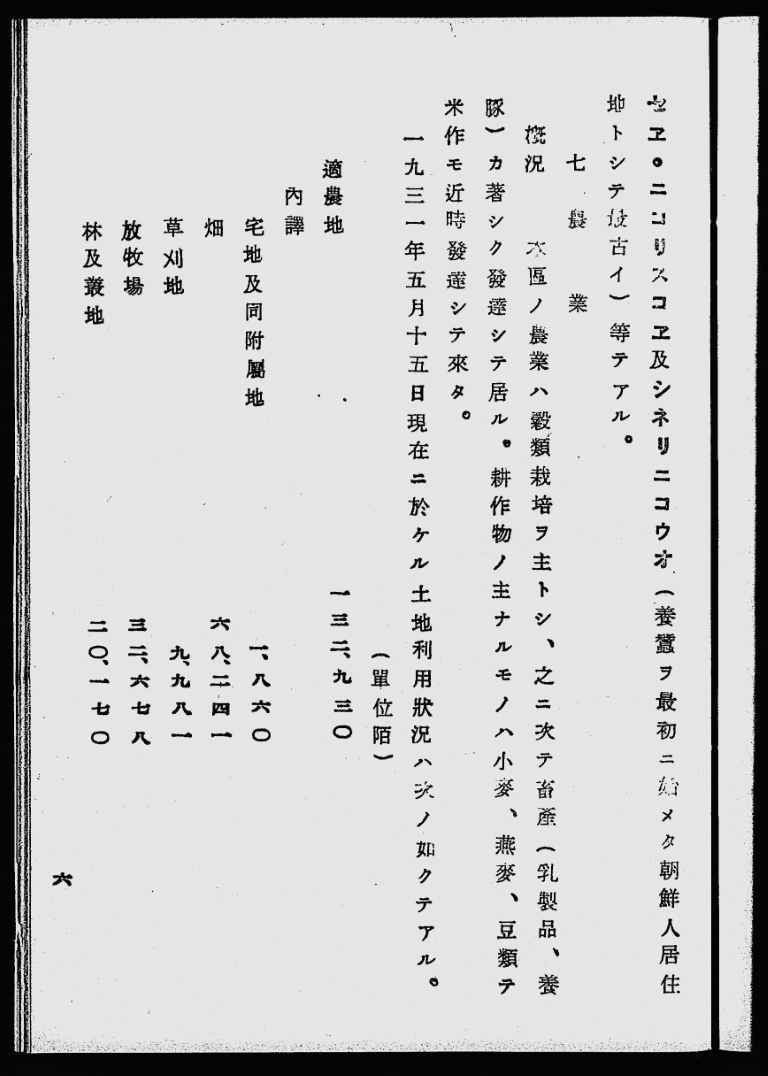 セヱ。ニコリスコヱ及シネリニコウオ(養蠶ヲ最初ニ始メタ朝鮮人居住
地トシテ最古イ)等テアル。
七 農 業
概況 本區ノ農業ハ穀類栽培ヲ主トシ、之ニ次テ畜產(乳製品、養
豚)カ著シク發達シテ居ル。耕作物ノ主ナルモノハ小麥、燕麥、豆類テ
米作モ近時發達シテ來タ。
一九三一年五月十五日現在ニ於ケル土地利用狀況ハ次ノ如クテアル。
(單位陌)
適農地 一三二、九三〇
內譯
宅地及同附屬地 一、八六〇
畑 六八、二四一
草刈地 九、九八一
放牧場 三二、六七八
林及叢地 二〇、一七〇
六